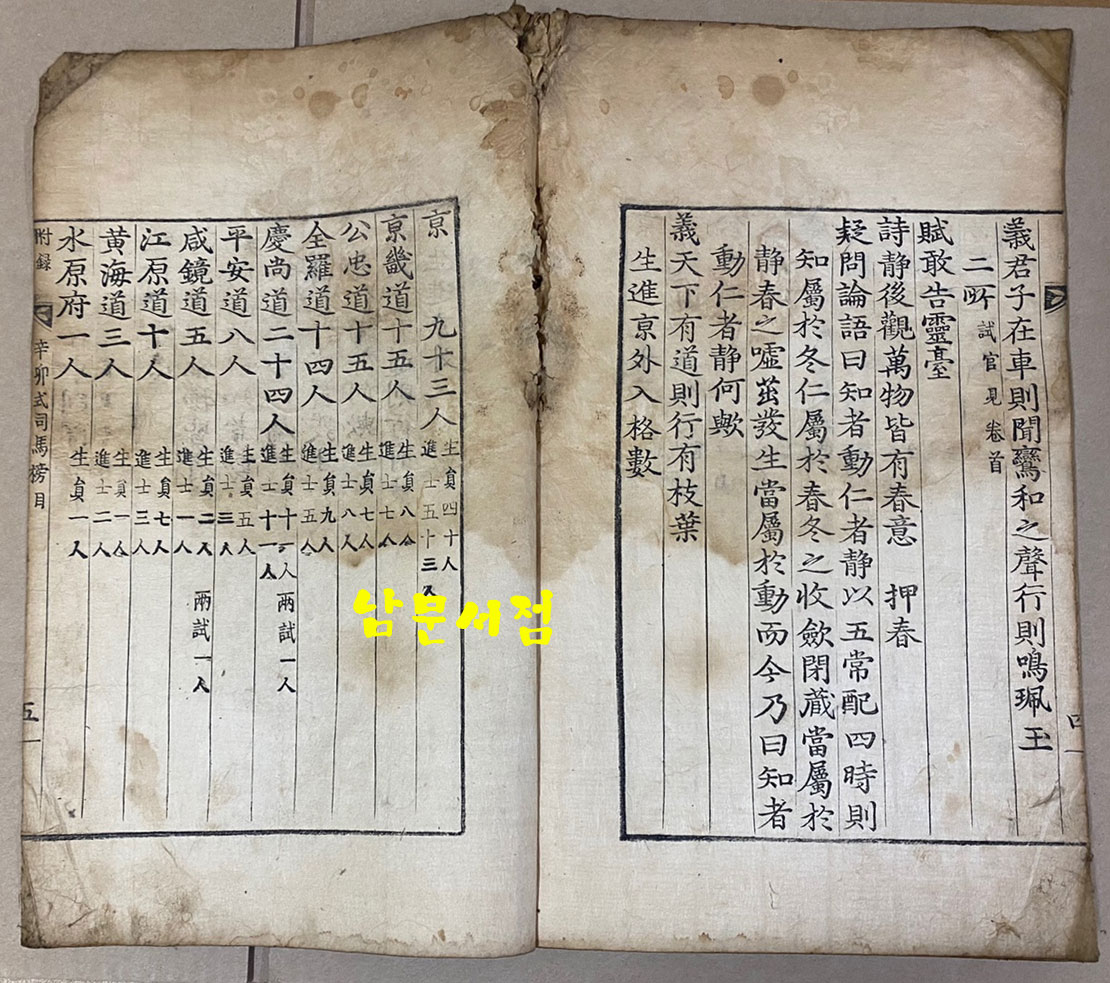 義君子在車則聞鸞和之聲行則鳴珮玉
二所 試官見卷首
賦敢告靈臺
詩静後觀萬物皆有春意 押春
疑問論語曰知者動仁者静以五常配四時則
知屬於冬仁屬於春冬之收斂閉蔵當屬於
静春之噓茁發生當屬於動而今乃曰知者
動仁者静何歟
義天下有道則行有枝葉
生進京外入格數
四
京 九十三人 生員四十人 進士五十三人
京畿道十五人 生員八人 進士七人
公忠道十五人 生員七人 進士八人
全羅道十四人 生員九人 進士五人
慶尚道二十四人 生員十一人 進士十一人 兩試一人
平安道八人 生員五人 進士三人
咸鏡道五人 生員二人 進士一人 兩試一人
江原道十人 生員七人 進士三人
黄海道三人 生員一人 進士二人
水原府一人 生員一人
附録 辛卯式司馬榜目 五
남문서점